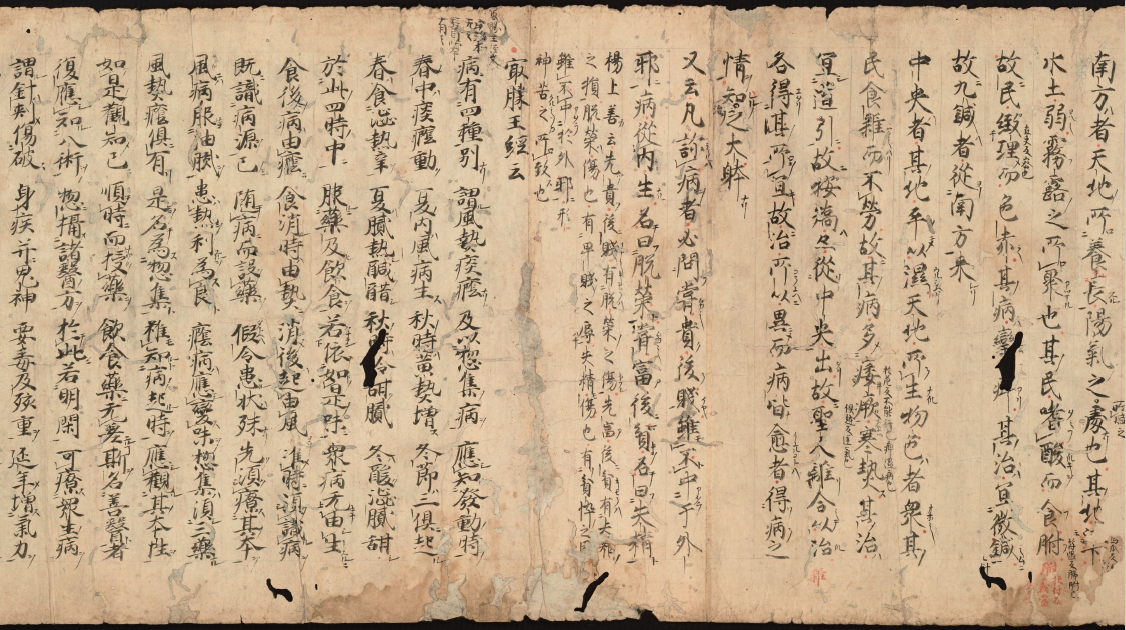 南方者天地所養長陽氣之處也其地下
水土弱霧露之所聚也其民嗜酸而食胕
故民緻理而色赤其病攣其治宜微鍼
故九鍼者從南方来
中央者其地平以濕天地所生物色者衆其
民食雜而不勞故其病多痿厥寒熱其治
宜導引故按蹻亦從中央出故聖人雜合以治
各得其所宜故治所以異而病皆愈者得病之
情智之大躰
又云凡診病者必問嘗貴後賤雖不中于外
耶病從内生名曰脱榮嘗富後貧名曰失精
楊上善云先貴後賤有脱榮之傷先富後貧有失精
之損脱榮傷也有卑賤之辱失精傷也有貧悴之
雖不中於外耶形
神苦之所致也
冣勝王経云
病有四種別 謂風熱痰癊 及以惣集病 應知發動時
春中痰癊動 夏内風病生 秋時黄熱增 冬節三俱起
春食澁熱辛 夏膩熱鹹醋 秋時冷甜膩 冬酸澁膩甜
於此四時中 服藥及飲食 若依如是味 衆病无由生
食後病由癊 食消時由熱 消後起由風 准時須識病
既識病源已 随病而設藥 假令患状殊 先須療其本
風病服油膩 患熱利為良 癊病應變吐 惣集須三藥
風熱癊俱有 是名為惣集 雖知病起時 應觀其本性
如是觀知已 順時而授藥 飲食藥无差 斯名善醫者
復應知八術 惣攝諸醫方 於此若明閑 可療衆生病
謂針刺傷破 身疾并鬼神 惡毒及孩童 延年增氣力